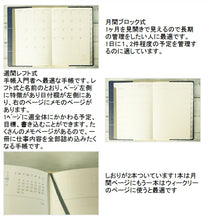 月間ブロック式
1ヶ月を見開きで見えるので長期
の管理をしたい人に最適です。
1日に1,2件程度の予定を管理す
るのに適しています。
週間レフト式
手帳入門者へ最適な手帳です。レ
フト式と名前のとおり、ページ左側
に特徴があり日付欄が左側にあ
り、右のページにメモのページが
あります。
1ページに週全体にかかわる予定、
目標、書き込むことができます。た
くさんのメモページがあるので、一
冊に仕事内容を全部詰め込みたく
なる手帳です。
しおりが2本ついています!1本は月
間ページにもう一本はウィークリー
のページに使うと最適です